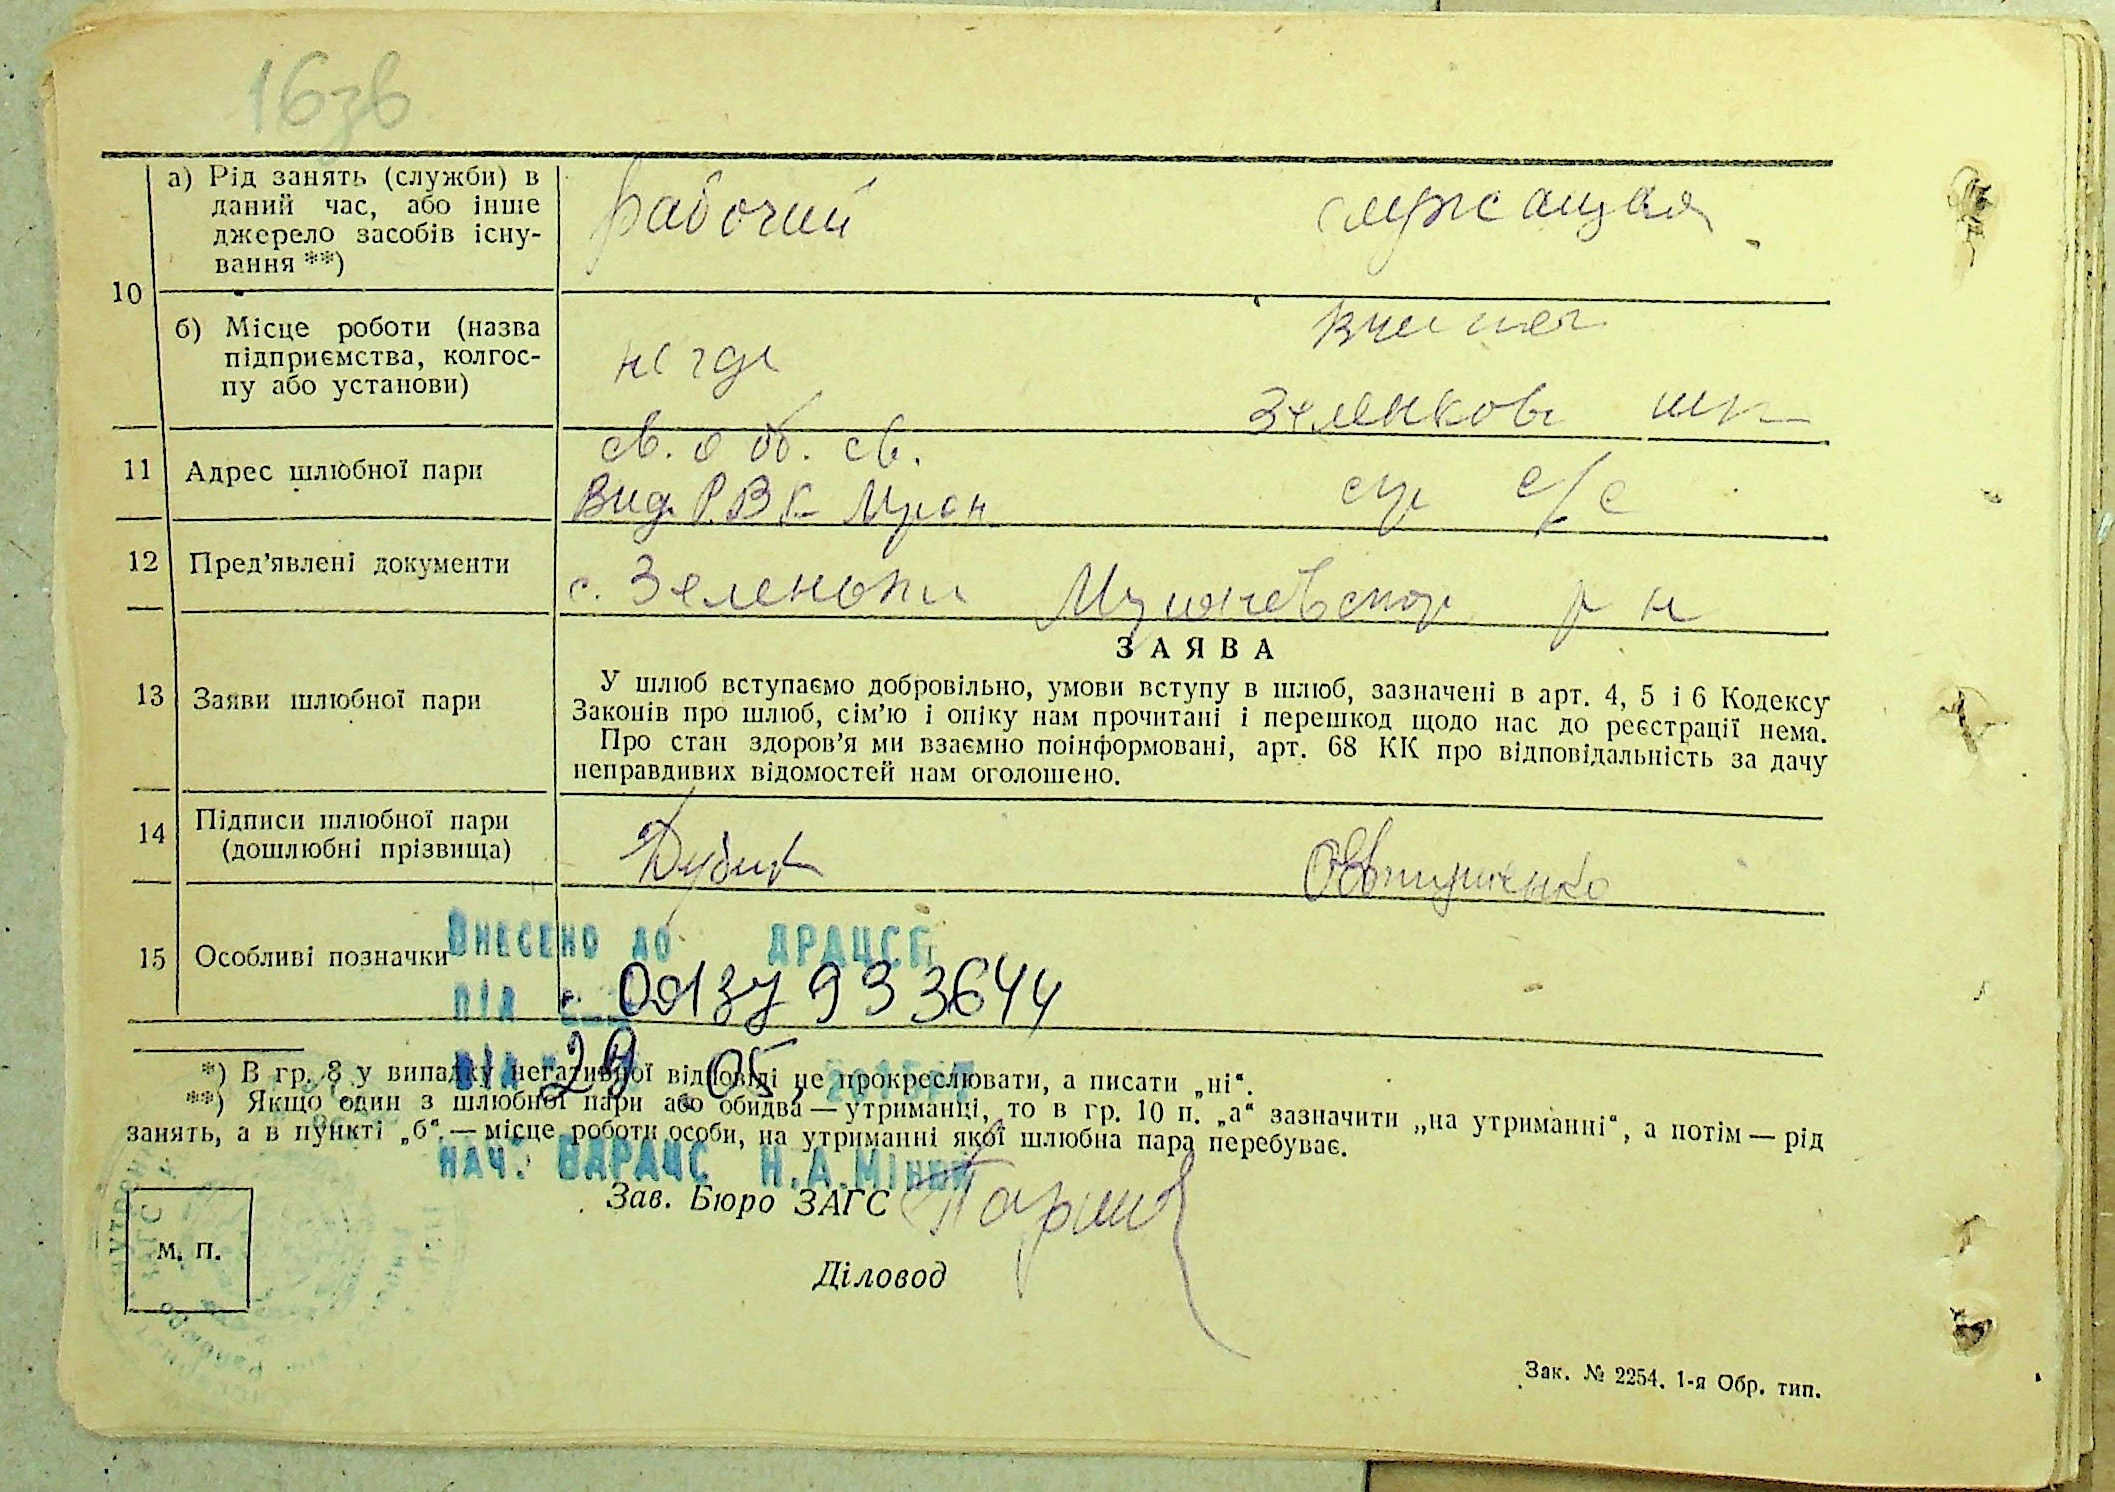 16зв
10
а) Рід занять (служби) в
даний час, або інше
джерело засобів існу-
вання **)
рабочий
служащая
б) Місце роботи (назва
підприємства, колгос-
пу або установи)
нігде
Зеленков шк
11
Адрес шлюбної пари
св. о об. св.
Вид. РВК
с/с
12
Пред'явлені документи
с. Зеленьки р н
ЗАЯВА
13
Заяви шлюбної пари
У шлюб вступаємо добровільно, умови вступу в шлюб, зазначені в арт. 4, 5 і 6 Кодексу
Законів про шлюб, сім'ю і опіку нам прочитані і перешкод щодо нас до реєстрації нема.
Про стан здоров'я ми взаємно поінформовані, арт. 68 КК про відповідальність за дачу
неправдивих відомостей нам оголошено.
14
Підписи шлюбної пари
(дошлюбні прізвища)
15
Особливі позначки
Внесено до ДРАЦСГ
під 00137933644
від 29.05, 2015р
*) В гр. 8 у випадку негативної відповіді не прокреслювати, а писати „ні“.
**) Якщо один з шлюбної пари або обидва — утриманці, то в гр. 10 п. „а“ зазначити „на утриманні“, а потім — рід
занять, а в пункті „б“ — місце роботи особи, на утриманні якої шлюбна пара перебуває.
нач. ВДРАЦС Н.А.
Зав. Бюро ЗАГС
М. П.
Діловод
Зак. № 2254. 1-я Обр. тип.